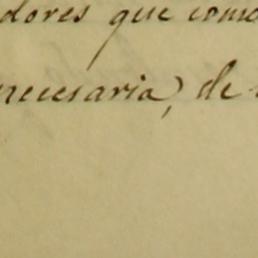 dores que como
necesaria, de